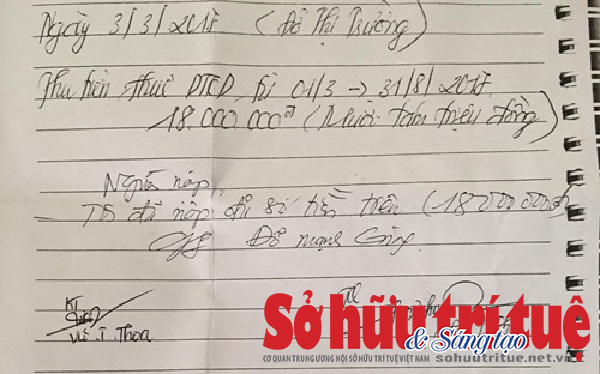 Ngày 3/3/2017 (Đỗ Thị Trường)
Thu tiền thuê DTCD từ 01/3 → 31/8/2017
18.000.000đ (Mười tám triệu đồng)
Người nộp
Tôi đã nộp đủ số tiền trên (18000000đ)
Đỗ mạnh
KT
T. Thoa
Sở hữu trí tuệ
& Sáng tạo
CƠ QUAN TRUNG ƯƠNG HỘI SỞ HỮU TRÍ TUỆ VIỆT NAM sohuutritue.net.vn